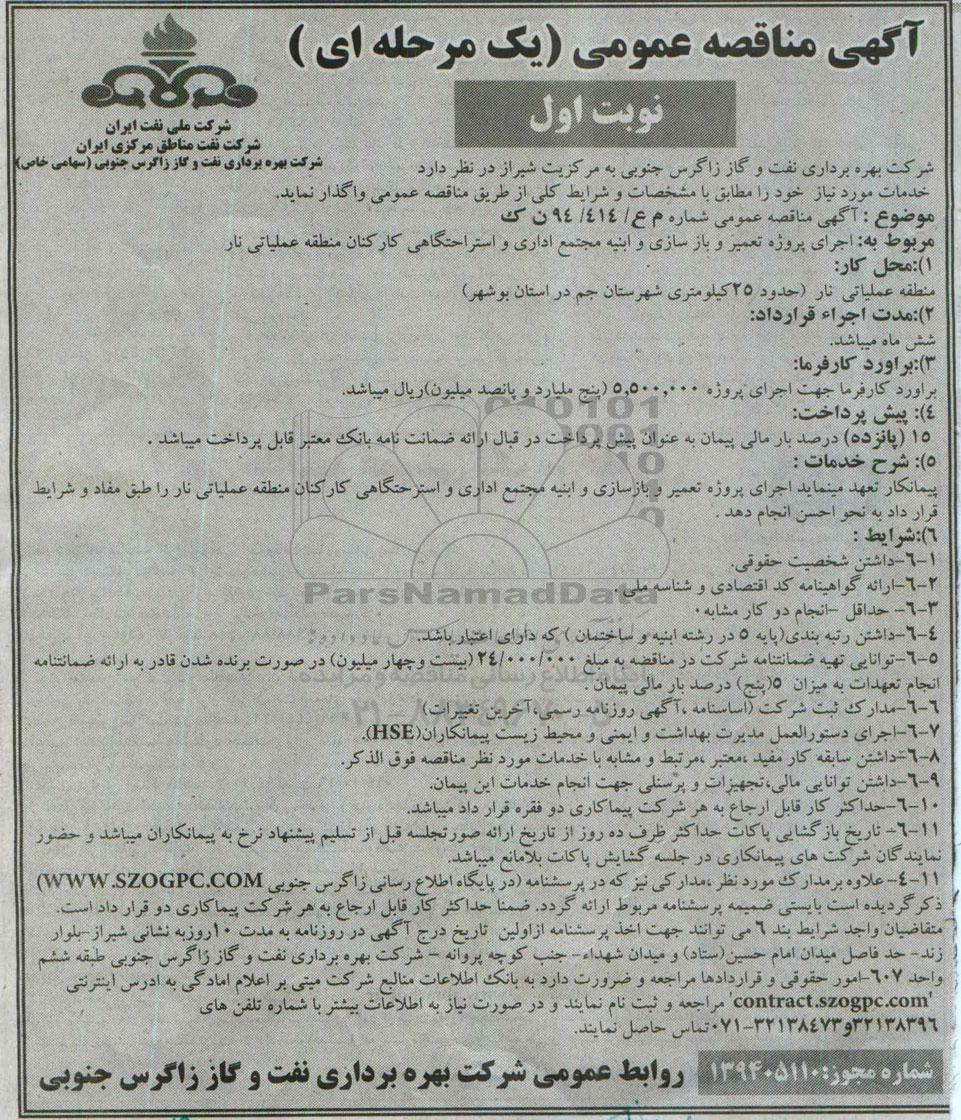 آگهی مناقصه عمومی (یک مرحله ای)
نوبت اول
شرکت ملی نفت ایران
شرکت نفت مناطق مرکزی ایران
شرکت بهره برداری نفت و گاز زاگرس جنوبی (سهامی خاص)
شرکت بهره برداری نفت و گاز زاگرس جنوبی به مرکزیت شیراز در نظر دارد
خدمات مورد نیاز خود را مطابق با مشخصات و شرایط کلی از طریق مناقصه عمومی واگذار نماید.
موضوع : آگهی مناقصه عمومی شماره م ع/ ٤١٤/ ٩٤ ن ک
مربوط به: اجرای پروژه تعمیر و باز سازی و ابنیه مجتمع اداری و استراحتگاهی کارکنان منطقه عملیاتی نار
١):محل کار:
منطقه عملیاتی نار (حدود ٢٥کیلومتری شهرستان جم در استان بوشهر)
٢):مدت اجراء قرارداد:
شش ماه میباشد.
٣):براورد کارفرما:
براورد کارفرما جهت اجرای پروژه ٥,٥٠٠,٠٠٠ (پنج ملیارد و پانصد میلیون)ریال میباشد.
٤): پیش پرداخت:
١٥ (پانزده) درصد بار مالی پیمان به عنوان پیش پرداخت در قبال ارائه ضمانت نامه بانک معتبر قابل پرداخت میباشد .
٥): شرح خدمات :
پیمانکار تعهد مینماید اجرای پروژه تعمیر و بازسازی و ابنیه مجتمع اداری و استرحتگاهی کارکنان منطقه عملیاتی نار را طبق مفاد و شرایط
قرار داد به نحو احسن انجام دهد .
٦):شرایط :
٦-١-داشتن شخصیت حقوقی.
٦-٢-ارائه گواهینامه کد اقتصادی و شناسه ملی.
٦-٣- حداقل -انجام دو کار مشابه.
٦-٤-داشتن رتبه بندی(پایه ٥ در رشته ابنیه و ساختمان ) که دارای اعتبار باشد.
٦-٥-توانایی تهیه ضمانتنامه شرکت در مناقصه به مبلغ ٢٤/٠٠٠/٠٠٠ (بیست وچهار میلیون) در صورت برنده شدن قادر به ارائه ضمانتنامه
انجام تعهدات به میزان ٥(پنج) درصد بار مالی پیمان .
٦-٦-مدارک ثبت شرکت (اساسنامه ،آگهی روزنامه رسمی،آخرین تغییرات)
٦-٧-اجرای دستورالعمل مدیرت بهداشت و ایمنی و محیط زیست پیمانکاران(HSE).
٦-٨-داشتن سابقه کار مفید ،معتبر ،مرتبط و مشابه با خدمات مورد نظر مناقصه فوق الذکر.
٦-٩-داشتن توانایی مالی،تجهیزات و پرسنلی جهت انجام خدمات این پیمان.
٦-١٠-حداکثر کار قابل ارجاع به هر شرکت پیماکاری دو فقره قرار داد میباشد.
٦-١١- تاریخ بازگشایی پاکات حداکثر ظرف ده روز از تاریخ ارائه صورتجلسه قبل از تسلیم پیشنهاد نرخ به پیمانکاران میباشد و حضور
نمایندگان شرکت های پیمانکاری در جلسه گشایش پاکات بلامانع میباشد.
٤-١١-علاوه برمدارک مورد نظر ،مدارکی نیز که در پرسشنامه (در پایگاه اطلاع رسانی زاگرس جنوبی WWW.SZOGPC.COM)
ذکرگردیده است بایستی ضمیمه پرسشنامه مربوط ارائه گردد. ضمنا حداکثر کار قابل ارجاع به هر شرکت پیماکاری دو قرار داد است.
متقاضیان واجد شرایط بند ٦می توانند جهت اخذ پرسشنامه ازاولین تاریخ درج آگهی در روزنامه به مدت ١٠روزبه نشانی شیراز-بلوار
زند- حد فاصل میدان امام حسین(ستاد) و میدان شهداء- جنب کوچه پروانه - شرکت بهره برداری نفت و گاز زاگرس جنوبی طبقه ششم
واحد ٦٠٧-امور حقوقی و قراردادها مراجعه و ضرورت دارد به بانک اطلاعات منالبع شرکت مبتی بر اعلام امادگی به ادرس اینترنتی
'contract.szogpc.com' مراجعه و ثبت نام نمایند و در صورت نیاز به اطلاعات بیشتر با شماره تلفن های
٣٢١٣٨٣٩٦و٣٢١٣٨٤٧٣-٠٧١تماس حاصل نمایند.
شماره مجوز:١٣٩٤٠٥١١٠
روابط عمومی شرکت بهره برداری نفت و گاز زاگرس جنوبی
ParsNamadData